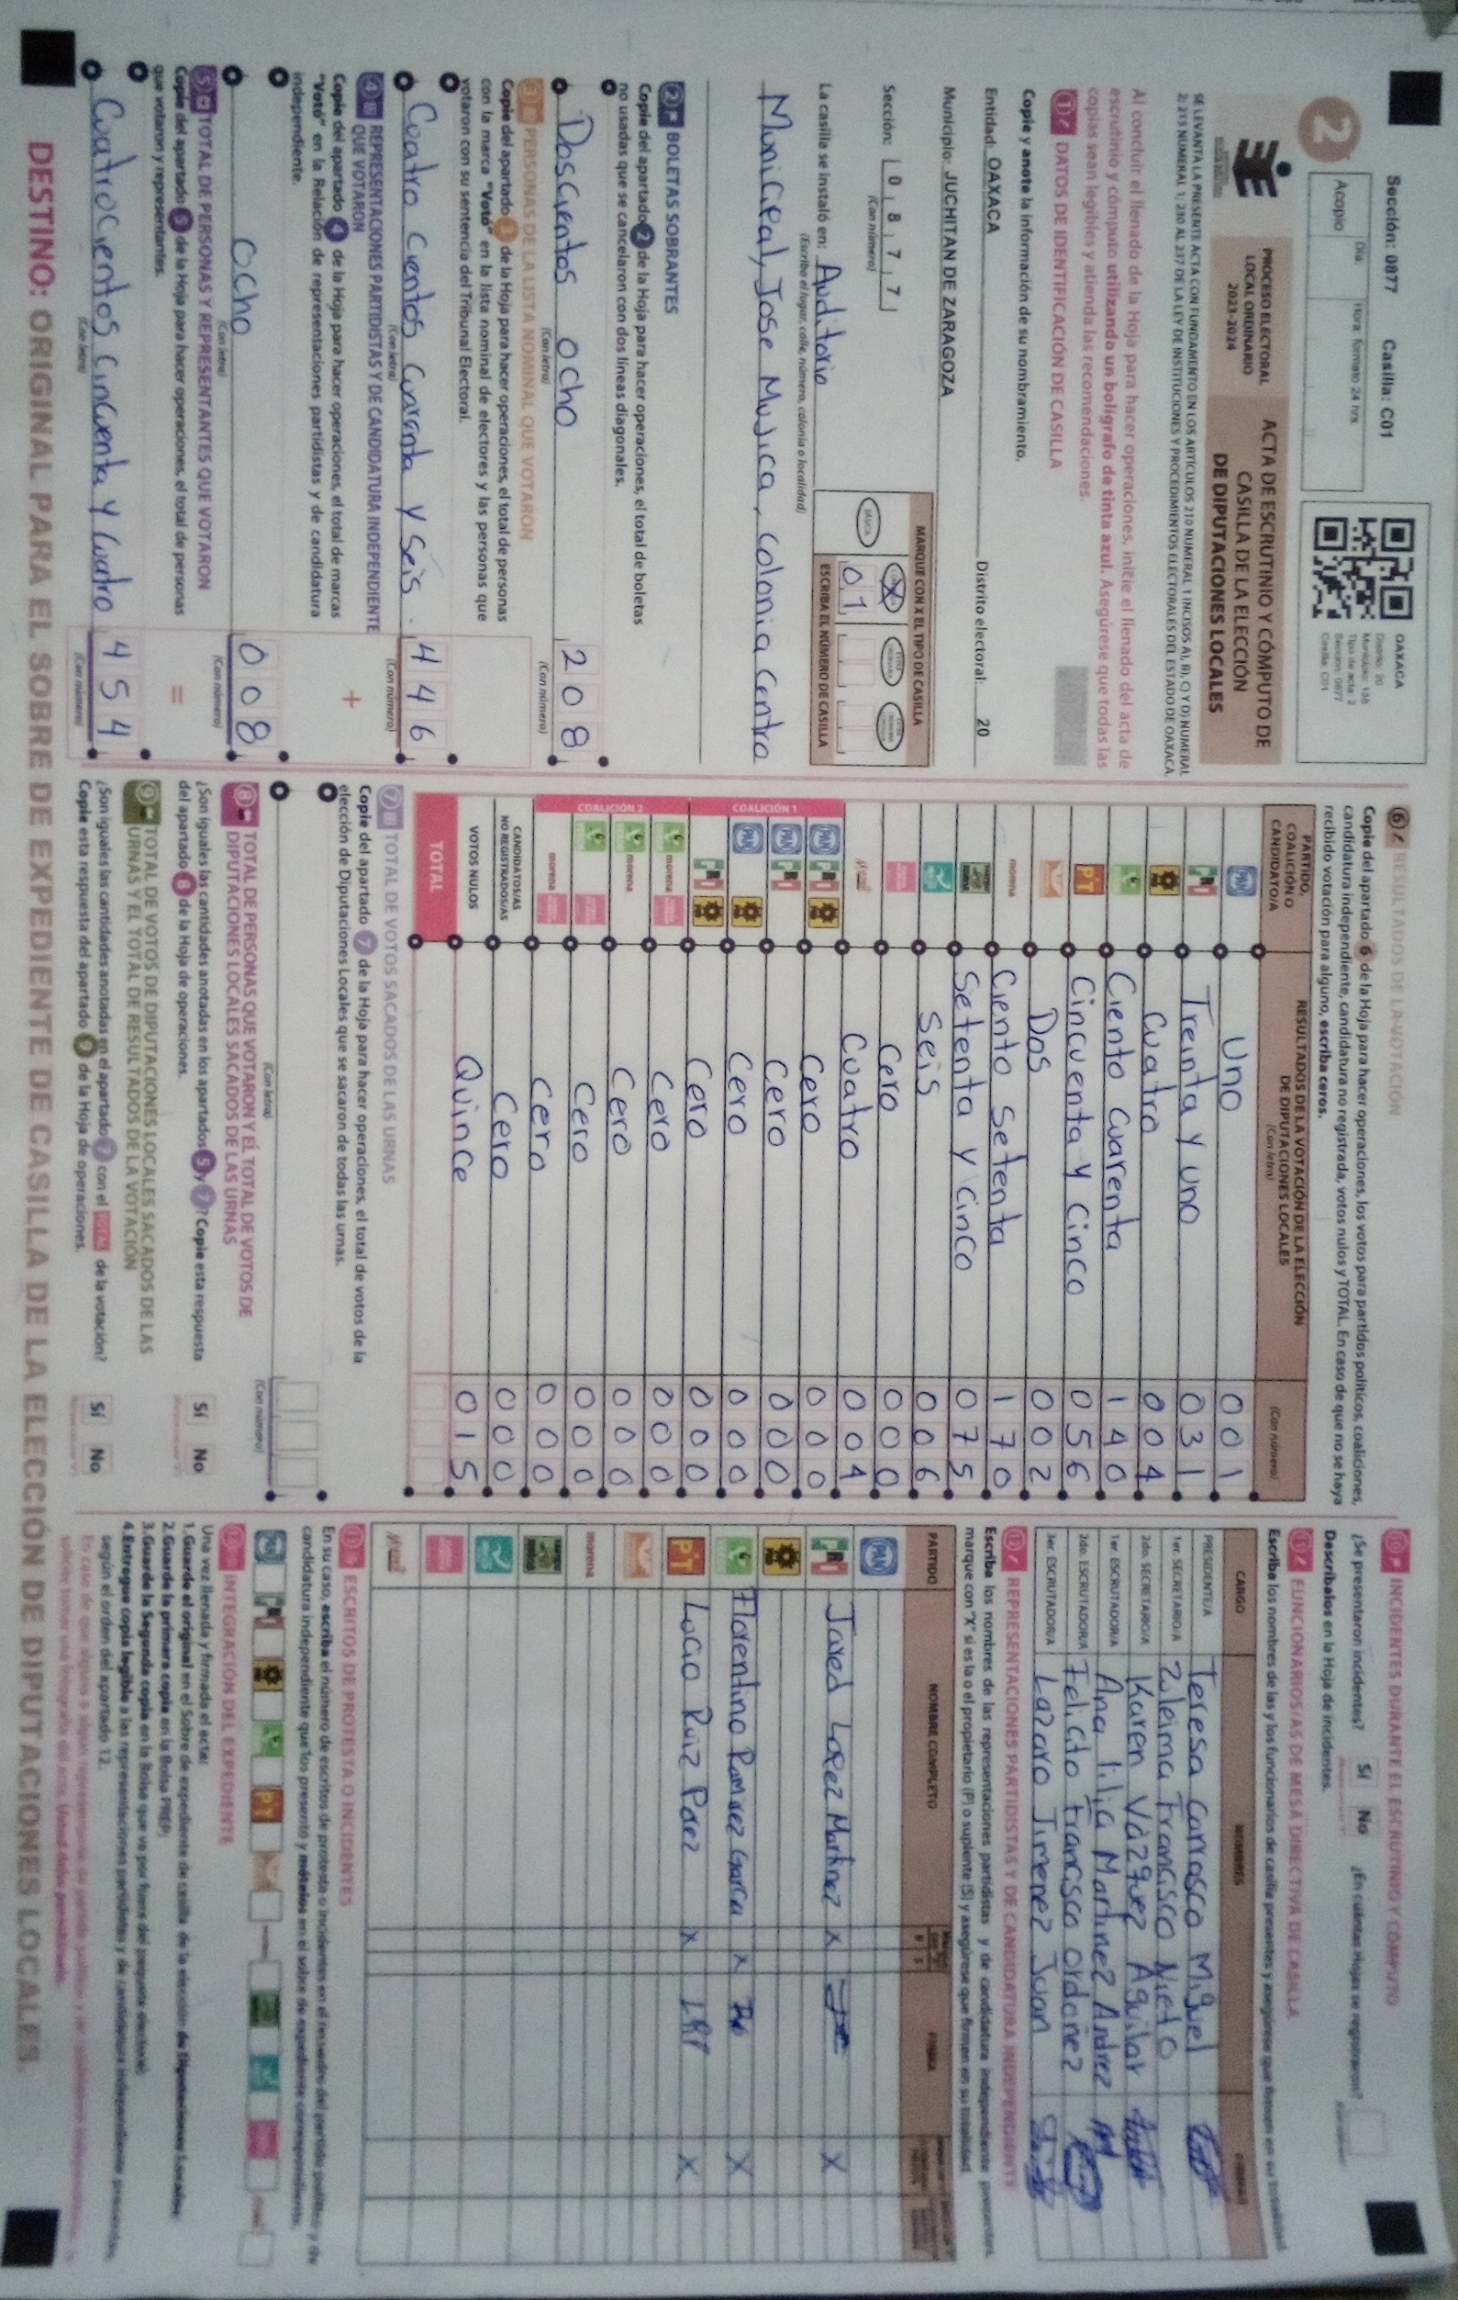 Sección: 0877 Casilla: C01
2
Acopio
Día: Hora: formato 24 hrs
OAXACA
Distrito: 20
Municipio: 138
Tipo de acta: 2
Sección: 0877
Casilla: C01
PROCESO ELECTORAL
LOCAL ORDINARIO
2023-2024
ACTA DE ESCRUTINIO Y CÓMPUTO DE
CASILLA DE LA ELECCIÓN
DE DIPUTACIONES LOCALES
SE LEVANTA LA PRESENTE ACTA CON FUNDAMENTO EN LOS ARTÍCULOS 210 NUMERAL 1 INCISOS A), B), C) Y D) NUMERAL
2; 213 NUMERAL 1; 230 AL 237 DE LA LEY DE INSTITUCIONES Y PROCEDIMIENTOS ELECTORALES DEL ESTADO DE OAXACA.
Al concluir el llenado de la Hoja para hacer operaciones, inicie el llenado del acta de
escrutinio y cómputo utilizando un bolígrafo de tinta azul. Asegúrese que todas las
copias sean legibles y atienda las recomendaciones.
1 DATOS DE IDENTIFICACIÓN DE CASILLA
Copie y anote la información de su nombramiento.
Entidad: OAXACA Distrito electoral: 20
Municipio: JUCHITAN DE ZARAGOZA
Sección: 0 8 7 7
(Con número)
MARQUE CON X EL TIPO DE CASILLA
BÁSICA X
ESCRIBA EL NÚMERO DE CASILLA
0 1
La casilla se instaló en: Auditorio
(Escriba el lugar, calle, número, colonia o localidad)
Municipal, Jose Mujica, Colonia Centro
2 BOLETAS SOBRANTES
Copie del apartado 2 de la Hoja para hacer operaciones, el total de boletas
no usadas que se cancelaron con dos líneas diagonales.
Doscientos ocho 2 0 8
(Con letra) (Con número)
3 PERSONAS DE LA LISTA NOMINAL QUE VOTARON
Copie del apartado 3 de la Hoja para hacer operaciones, el total de personas
con la marca "Votó" en la lista nominal de electores y las personas que
votaron con su sentencia del Tribunal Electoral.
Coatro cientos Cuarenta y Seis. 4 4 6
(Con letra) (Con número)
4 REPRESENTACIONES PARTIDISTAS Y DE CANDIDATURA INDEPENDIENTE
QUE VOTARON
Copie del apartado 4 de la Hoja para hacer operaciones, el total de marcas
"Votó" en la Relación de representaciones partidistas y de candidatura
independiente.
+
Ocho 0 0 8
(Con letra) (Con número)
5 TOTAL DE PERSONAS Y REPRESENTANTES QUE VOTARON
Copie del apartado 5 de la Hoja para hacer operaciones, el total de personas
que votaron y representantes.
=
Cuatrocientos Cincuenta y Cuatro 4 5 4
(Con letra) (Con número)
6 RESULTADOS DE LA VOTACIÓN
Copie del apartado 6 de la Hoja para hacer operaciones, los votos para partidos políticos, coaliciones,
candidatura independiente, candidatura no registrada, votos nulos y TOTAL. En caso de que no se haya
recibido votación para alguno, escriba ceros.
PARTIDO,
COALICIÓN O
CANDIDATO/A
RESULTADOS DE LA VOTACIÓN DE LA ELECCIÓN
DE DIPUTACIONES LOCALES
(Con letra) (Con número)
PAN Uno 0 0 1
PRI Treinta y uno 0 3 1
PRD Cuatro 0 0 4
Ciento Cuarenta 1 4 0
PT Cincuenta y Cinco 0 5 6
Dos 0 0 2
morena Ciento Setenta 1 7 0
Setenta y cinco 0 7 5
Seis 0 0 6
Cero 0 0 0
Cuatro 0 0 4
COALICIÓN 1
PAN PRI PRD Cero 0 0 0
PAN PRI Cero 0 0 0
PAN PRD Cero 0 0 0
PRI PRD Cero 0 0 0
COALICIÓN 2
morena Cero 0 0 0
morena Cero 0 0 0
Cero 0 0 0
morena Cero 0 0 0
CANDIDATOS/AS
NO REGISTRADOS/AS Cero 0 0 0
VOTOS NULOS Quince 0 1 5
TOTAL
7 TOTAL DE VOTOS SACADOS DE LAS URNAS
Copie del apartado 7 de la Hoja para hacer operaciones, el total de votos de la
elección de Diputaciones Locales que se sacaron de todas las urnas.
(Con letra) (Con número)
8 TOTAL DE PERSONAS QUE VOTARON Y EL TOTAL DE VOTOS DE
DIPUTACIONES LOCALES SACADOS DE LAS URNAS
¿Son iguales las cantidades anotadas en los apartados 5 y 7? Copie esta respuesta
del apartado 8 de la Hoja de operaciones.
Sí No
9 TOTAL DE VOTOS DE DIPUTACIONES LOCALES SACADOS DE LAS
URNAS Y EL TOTAL DE RESULTADOS DE LA VOTACIÓN
¿Son iguales las cantidades anotadas en el apartado 7 con el TOTAL de la votación?
Copie esta respuesta del apartado 9 de la Hoja de operaciones.
Sí No
10 INCIDENTES DURANTE EL ESCRUTINIO Y CÓMPUTO
¿Se presentaron incidentes? Sí No ¿En cuántas Hojas se registraron?
Descríbalos en la Hoja de incidentes.
11 FUNCIONARIOS/AS DE MESA DIRECTIVA DE CASILLA
Escriba los nombres de las y los funcionarios de casilla presentes y asegúrese que firmen en su totalidad.
CARGO NOMBRES FIRMAS
PRESIDENTE/A Teresa Carrasco Miguel
1er. SECRETARIO/A Zuleima Francisco Nieto
2do. SECRETARIO/A Karen Vázquez Aguilar
1er. ESCRUTADOR/A Ana lilia Martinez Andrez
2do. ESCRUTADOR/A Felicito francisco ordoñez
3er. ESCRUTADOR/A Lazaro Jimenez Juan
12 REPRESENTACIONES PARTIDISTAS Y DE CANDIDATURA INDEPENDIENTE
Escriba los nombres de las representaciones partidistas y de candidatura independiente presentes,
marque con "X" si es la o el propietario (P) o suplente (S) y asegúrese que firmen en su totalidad.
PARTIDO NOMBRE COMPLETO FIRMA
PAN
PRI Jared Lopez Martinez X X
Florentino Ramirez Garcia X X
PT Lucio Ruiz Perez X LRP X
morena
13 ESCRITOS DE PROTESTA O INCIDENTES
En su caso, escriba el número de escritos de protesta o incidentes en el recuadro del partido político y de
candidatura independiente que los presentó y métalos en el sobre de expediente correspondiente.
INTEGRACIÓN DEL EXPEDIENTE
Una vez llenada y firmada el acta:
1.Guarde el original en el Sobre de expediente de casilla de la elección de Diputaciones Locales;
2.Guarde la primera copia en la Bolsa PREP;
3.Guarde la Segunda copia en la Bolsa que va por fuera del paquete electoral;
4.Entregue copia legible a las representaciones partidistas y de candidatura independiente presentes,
según el orden del apartado 12.
DESTINO: ORIGINAL PARA EL SOBRE DE EXPEDIENTE DE CASILLA DE LA ELECCIÓN DE DIPUTACIONES LOCALES.